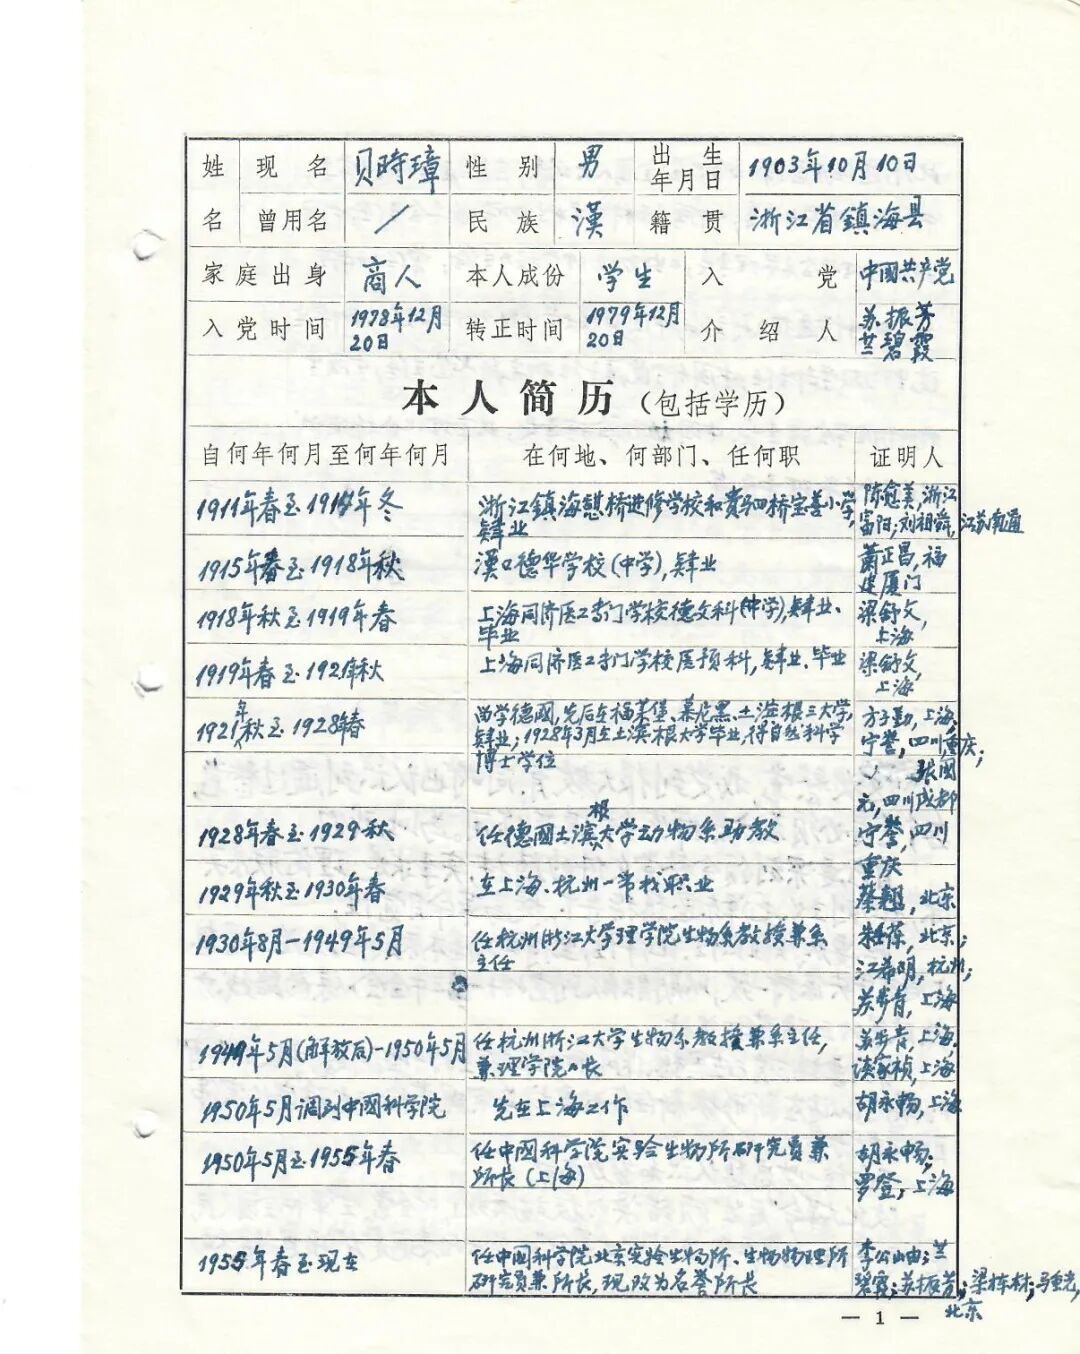 姓 现名 贝時璋 性别 男 出生年月日 1903年10月10日
名 曾用名 / 民族 漢 籍贯 浙江省鎮海县
家庭出身 商人 本人成份 学生 入党 中國共产党
入党时间 1978年12月20日 转正时间 1979年12月20日 介绍人 苏振芳 兰碧霞
本人简历（包括学历）
自何年何月至何年何月 在何地、何部门、任何职 证明人
1911年春至1914年冬 浙江鎮海憇桥进修学校和貴驷桥宝善小学, 陈愈美,浙江
肄业 富阳;刘祖舜,江苏南通
1915年春至1918年秋 漢口德华学校(中学),肄业 蕭正昌,福
建厦门
1918年秋至1919年春 上海同济医工专门学校德文科(中学)肄业、 梁舒文,
毕业 上海
1919年春至1921年秋 上海同济医工专门学校医预科,肄业、毕业 梁舒文,
上海
1921年秋至1928年春 留学德國,先后在福莱堡、慕尼黑、土滨根三大学, 方子勤,上海;
肄业;1928年3月在土滨根大学毕业,得自然科学 宁誉,四川重庆;
博士学位 张闻
元,四川成都
1928年春至1929秋 任德國土滨根大学动物系助教 宁誉,四川
重庆
1929年秋至1930年春 在上海、杭州一带找职业 蔡翘,北京
1930年8月-1949年5月 任杭州浙江大学理学院生物系教授兼系 朱壬葆,北京;
主任 江希明,杭州;
苏步青,上海
1949年5月(解放后)-1950年5月 任杭州浙江大学生物系教授兼系主任, 苏步青,上海
兼理学院院长 谈家桢,上海
1950年5月调到中國科学院 先在上海工作 胡永畅,上海
1950年5月至1955年春 任中國科学院实验生物所研究员兼 胡永畅;
所长(上海) 罗登,上海
1955年春至现在 任中國科学院北京实验生物所、生物物理所 李公岫;兰
研究員兼所长,现改为名誉所长 碧霞;苏振芳;梁栋材;马重光,
北京
— 1 —